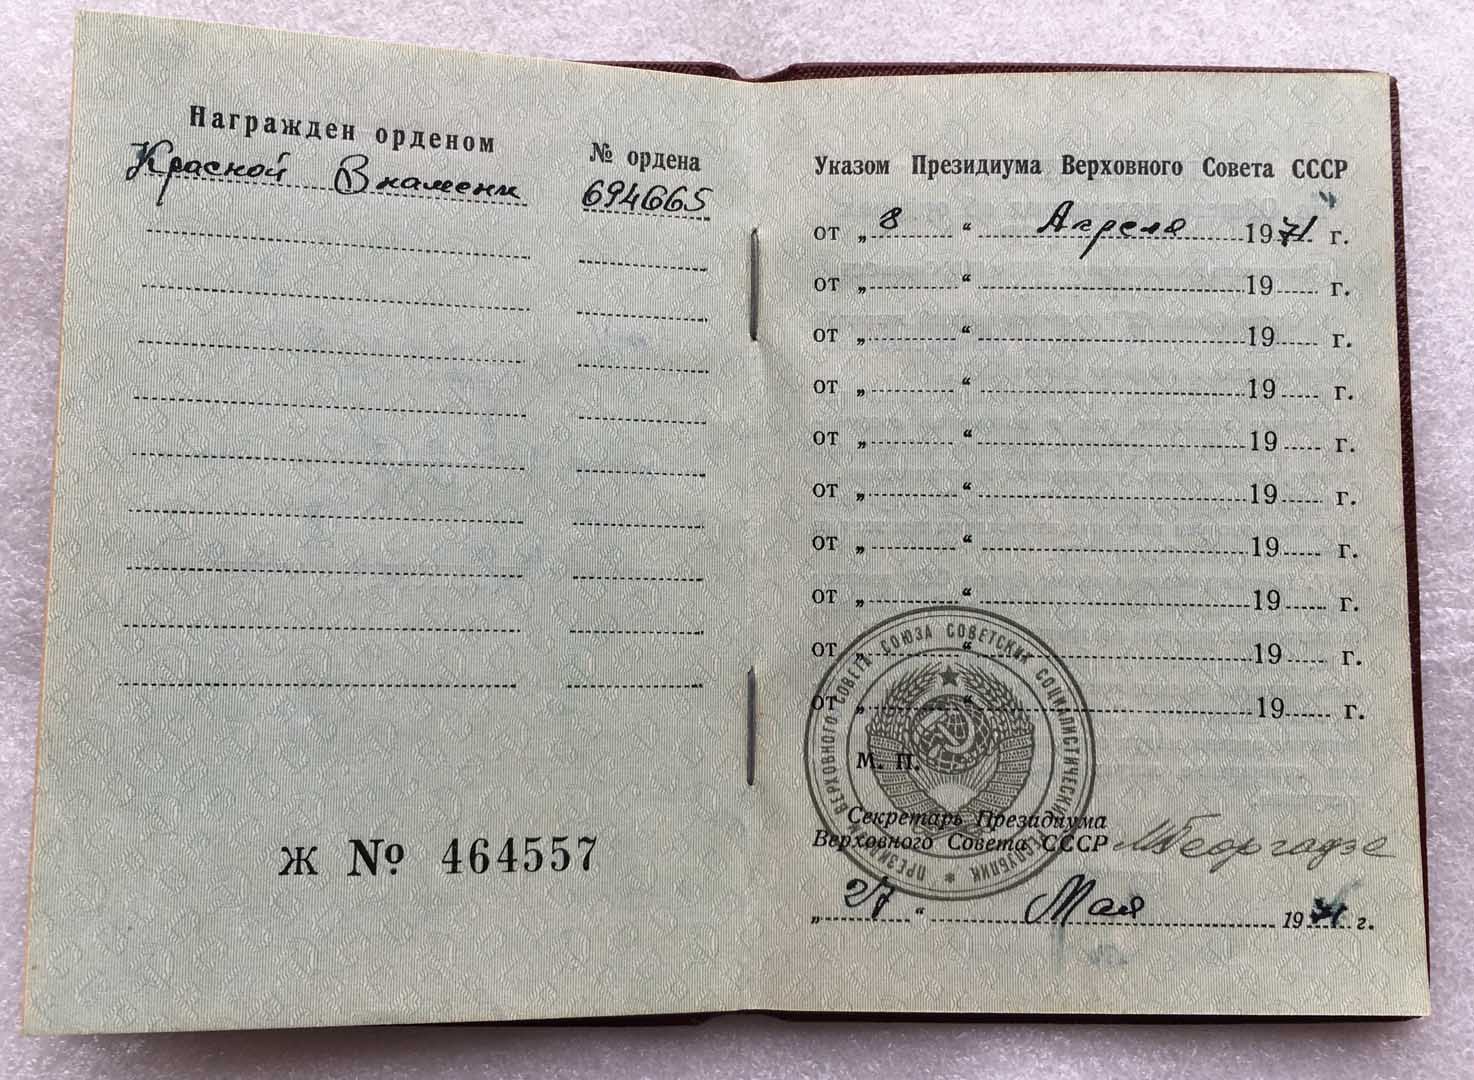 Награжден орденом
№ ордена
Красной Знамени 694665
Ж № 464557
Указом Президиума Верховного Совета СССР
от „ 8 “ Апреля 1971 г.
от „ “ 19 г.
от „ “ 19 г.
от „ “ 19 г.
от „ “ 19 г.
от „ “ 19 г.
от „ “ 19 г.
от „ “ 19 г.
от „ “ 19 г.
от „ “ 19 г.
ПРЕЗИДИУМ ВЕРХОВНОГО СОВЕТА СОЮЗА СОВЕТСКИХ СОЦИАЛИСТИЧЕСКИХ РЕСПУБЛИК *
М. П.
Секретарь Президиума
Верховного Совета СССР МГеоргадзе
„ 27 “ Мая 1971 г.